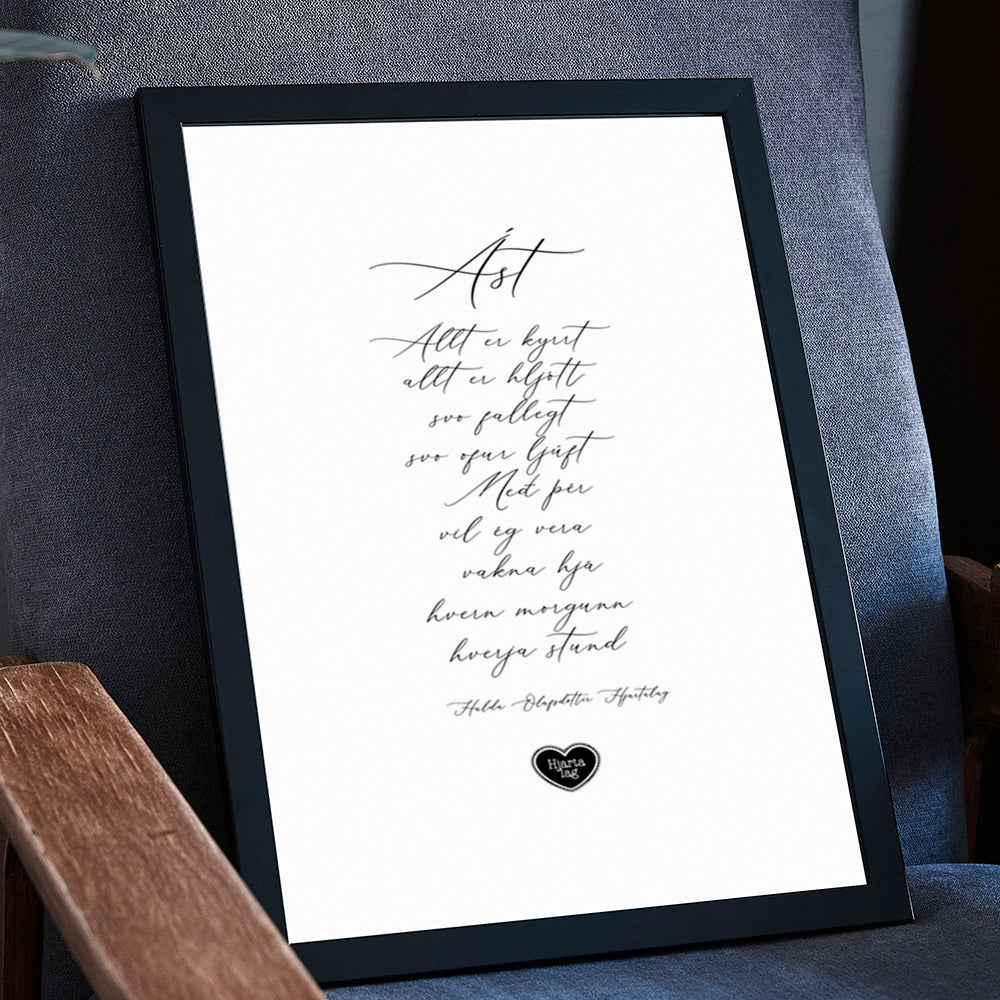 Ást
Allt er kyrrt
allt er hljótt
svo fallegt
svo ofur ljúft
Með þér
vil ég vera
vakna hjá
hvern morgunn
hverja stund
Hulda Ólafsdóttir Hjartalag
Hjarta
lag